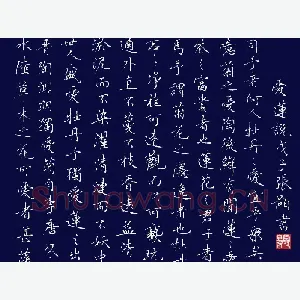 水陸草木之花可愛者甚蕃
晉陶淵明獨愛菊自李唐
世人盛愛牡丹予獨愛蓮之出
淤泥而不染濯清漣而不妖中
通外直不蔓不枝香遠益清
淨植可遠觀而不可褻玩
焉予謂菊花之隱逸者也牡丹
花之富貴者也蓮花之君子者
噫菊之愛陶後鮮有聞蓮之
同予者何人牡丹之愛宜乎眾矣
愛蓮說
Shufawang.cn